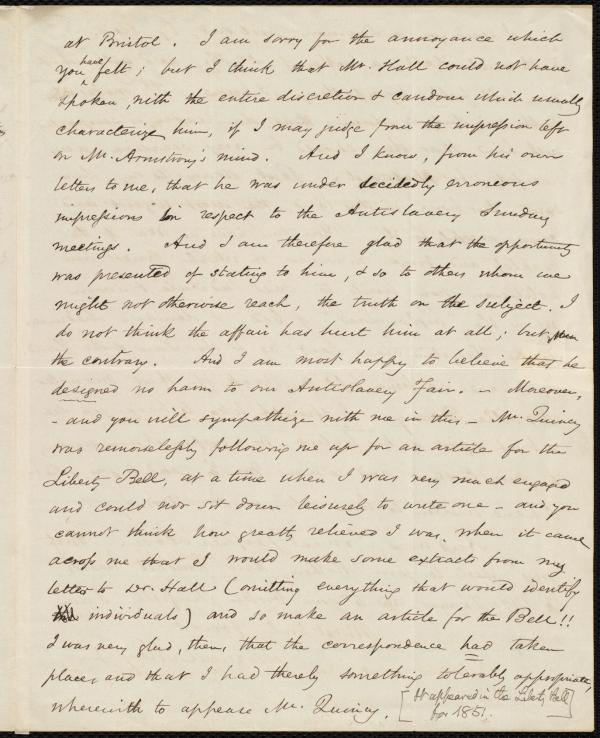 at Bristol. I am sorry for the annoyance which
you have felt; but I think that Mr. Hall could not have
spoken, with the entire discretion & candour which usually
characterize him, if I may judge from the impression left
on Mr. Armstrong's mind. And I know, from his own
letters to me, that he was under decidedly erroneous
impressions in respect to the Antislavery Sunday
meetings. And I am therefore glad that the opportunity
was presented of stating to him, & so to others whom we
might not otherwise reach, the truth on the subject. I
do not think the affair has hurt him at all; but
the contrary. And I am most happy to believe that he
designed no harm to our Antislavery Fair. – Moreover,
– and you will sympathize with me in this – Mr. Quincy
was remorselessly following me up for an article for the
Liberty Bell, at a time when I was very much engaged
and could not sit down leisurely to write one – and you
cannot think how greatly relieved I was, when it came
across me that I would make some extracts from my
letter to Dr. Hall (omitting everything that would identify
individuals) and so make an article for the Bell!!
I was very glad, then, that the correspondence had taken
place, and that I had thereby something tolerably appropriate,
wherewith to appease Mr. Quincy. [It appeared in the Liberty Bell
for 1851.